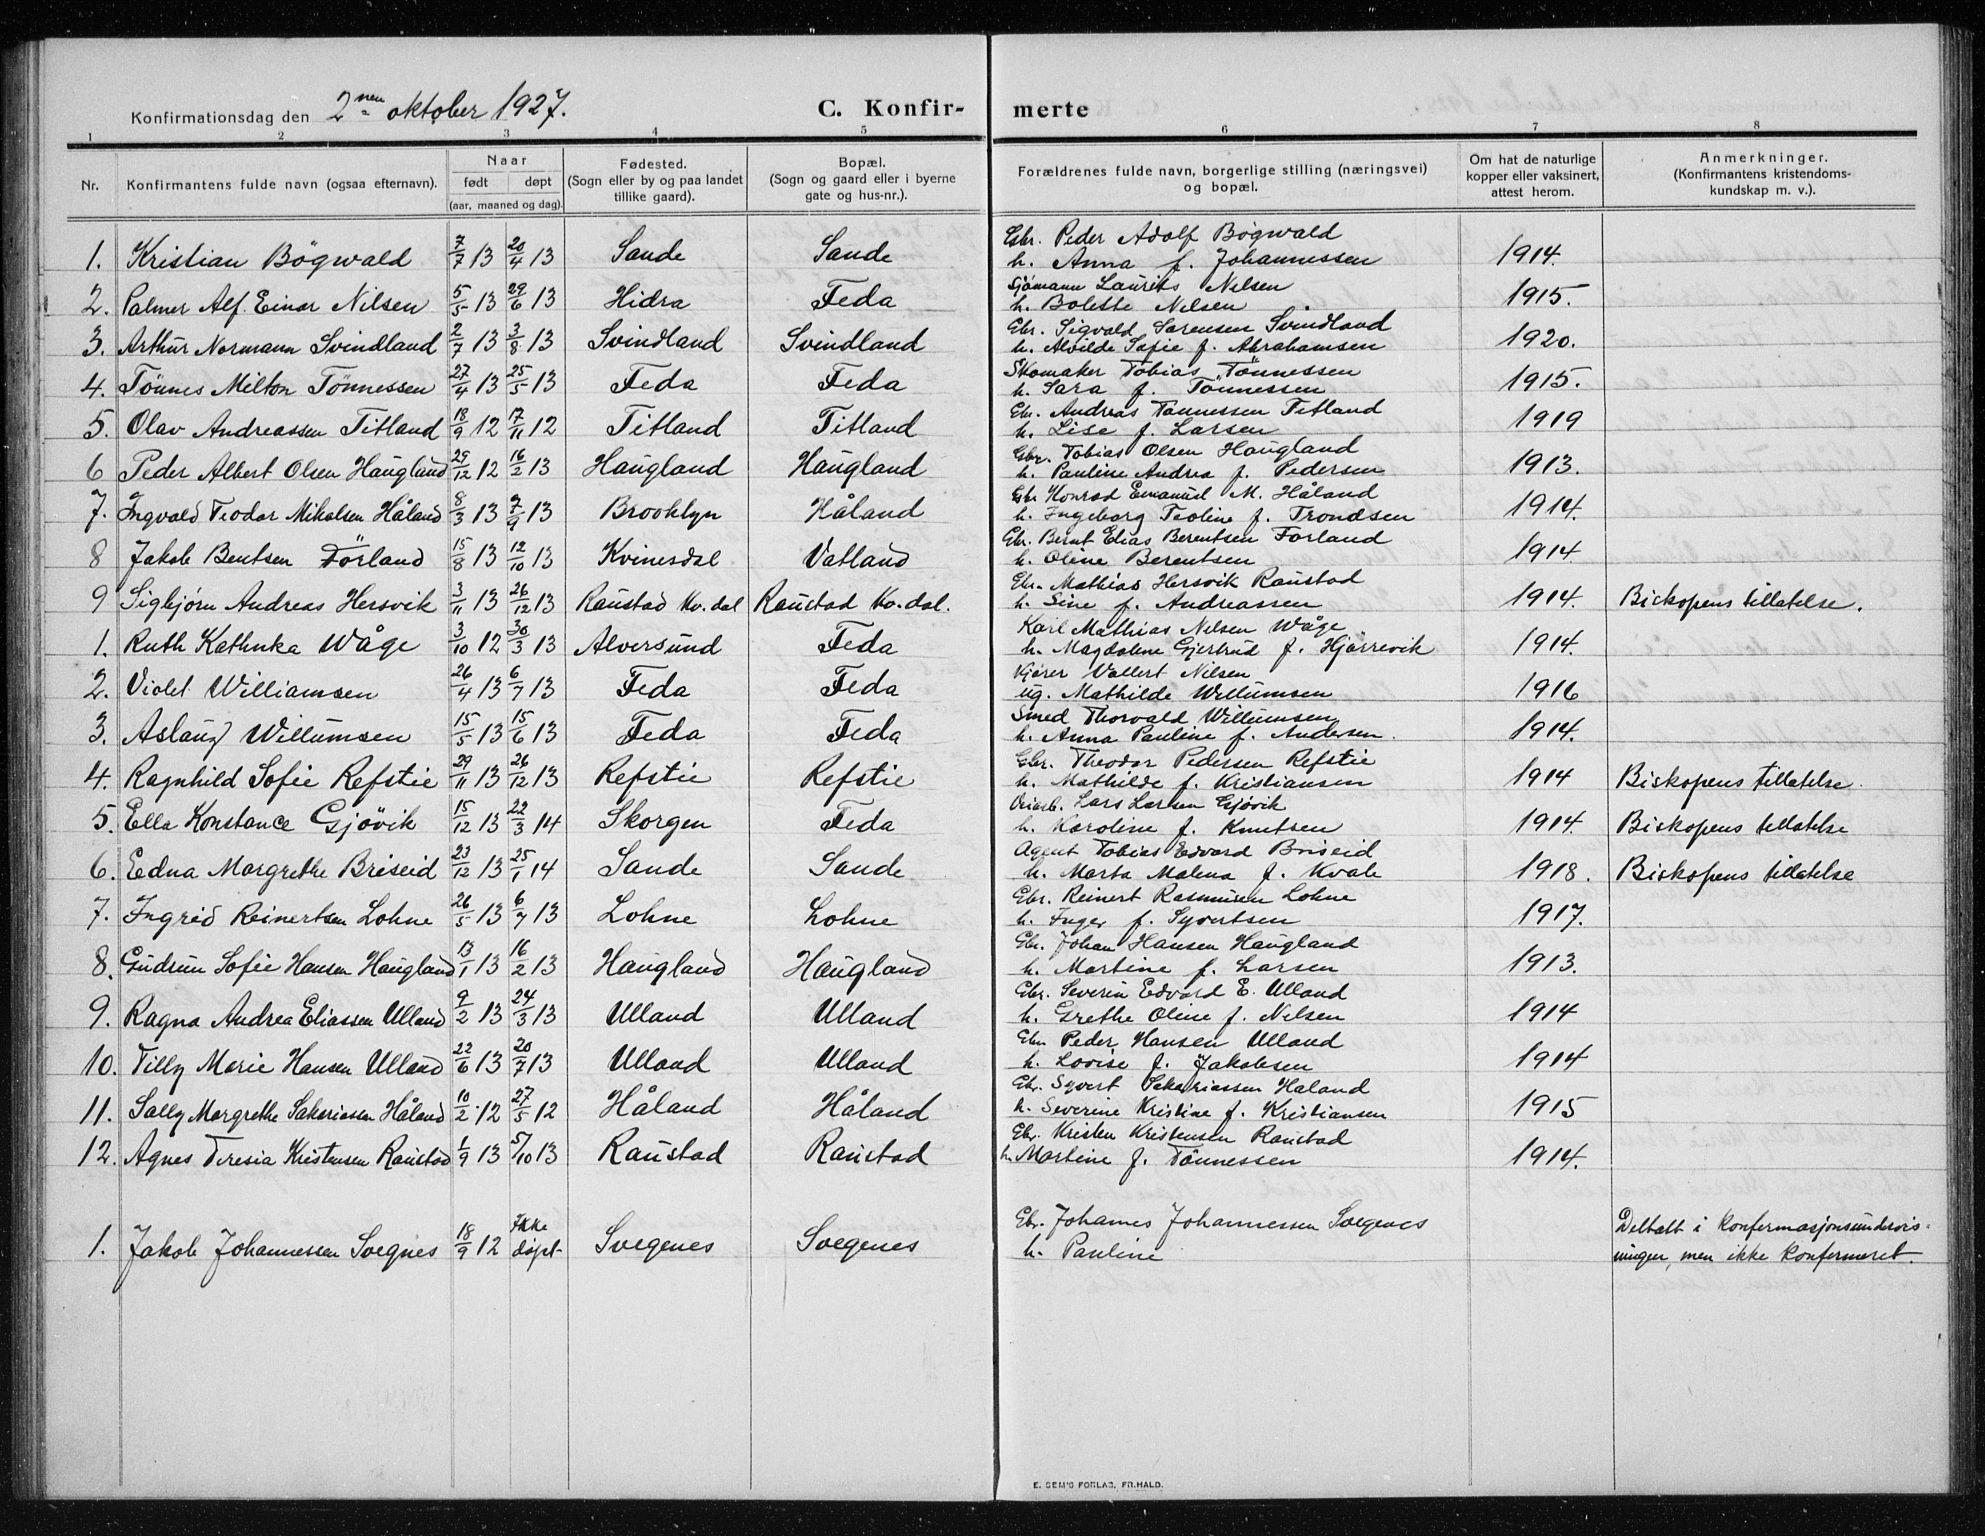 Konfirmationsdag den 2nen oktober 1927. C. Konfir- merte
1 2 3 4 5 6 7 8
Nr. Konfirmantens fulde navn (ogsaa efternavn). Naar født døpt (aar, maaned og dag). Fødested. (Sogn eller by og paa landet tillike gaard). Bopæl. (Sogn og gaard eller i byerne gate og hus-nr.). Forældrenes fulde navn, borgerlige stilling (næringsvei) og bopæl. Om hat de naturlige kopper eller vaksinert, attest herom. Anmerkninger. (Konfirmantens kristendoms- kundskap m. v.).
Gbr. Peder Adolf Bøgwald
1. Kristian Bøgwald 7/7 13 20/4 13 Sande Sande h. Anna f. Johannessen 1914.
Sjømann Laurits Nilsen
2. Palmer Alf. Einar Nilsen 5/5 13 29/6 13 Hidra Feda h. Bolette Nilsen 1915.
Gbr. Sigvald Sørensen Svindland
3. Arthur Normann Svindland 2/7 13 3/8 13 Svindland Svindland h. Alvilde Sofie f. Abrahamsen 1920.
Skomaker Tobias Tønnessen
4. Tönnes Milton Tönnessen 27/4 13 25/5 13 Feda Feda h. Sara f. Tönnessen 1915.
Gbr. Andreas Tønnessen Titland
5. Olav Andreassen Titland 18/9 12 17/11 12 Titland Titland h. Lise f. Larsen 1919
Gbr. Tobias Olsen Haugland
6 Peder Albert Olsen Haugland 29/12 12 16/2 13 Haugland Haugland h. Pauline Andrea f. Pedersen 1913.
Gbr Konrad Emanuel M. Håland
7. Ingvald Teodor Mikalsen Håland 8/3 13 7/9 13 Brooklyn Håland h. Ingeborg Teoline f. Trondsen 1914.
Gbr. Bernt Elias Berentsen Förland
8 Jakob Bentsen Förland 15/8 13 12/10 13 Kvinesdal Vatland h. Oline Berentsen 1914.
Gbr. Mathias Hersvik Raustad
9 Sigbjørn Andreas Hersvik 3/11 13 26/12 13 Raustad Kv. dal Raustad Kv. dal. h. Sine f. Andreassen 1914. Biskopens tillatelse.
Karl Mathias Nilsen Wåge
1. Ruth Kathinka Wåge 3/10 12 30/3 13 Alversund Feda h. Magdalene Gjertrud f. Hjørrevik 1914.
Kjører Vallert Nilsen
2. Violet Williamsen 26/4 13 6/7 13 Feda Feda ug. Mathilde Willumsen 1916
Smed Thorvald Willumsen
3. Aslaug Willumsen 15/5 13 15/6 13 Feda Feda h. Anna Pauline f. Andersen. 1914.
Gbr. Theodor Pedersen Refstie
4. Ragnhild Sofie Refstie 29/11 13 26/12 13 Refstie Refstie h. Mathilde f. Kristiansen 1914 Biskopens tillatelse.
Lars Larsen Gjøvik
5. Ella Konstance Gjövik 15/12 13 22/3 14 Skorgen Feda h. Karoline f. Knutsen 1914. Biskopens tillatelse
Agent Tobias Edvard Briseid
6. Edna Margrethe Briseid 23/12 13 25/1 14 Sande Sande h. Marta Malena f. Kvale 1918. Biskopens tillatelse
Gbr. Reinert Rasmussen Lohne
7. Ingrid Reinertsen Lohne 26/5 13 6/7 13 Lohne Lohne h. Inger f. Syvertsen 1917.
Gbr. Johan Hansen Haugland
8. Gudrun Sofie Hansen Haugland 13/1 13 16/2 13 Haugland Haugland h. Martine f. Larsen 1913.
Gbr. Severin Edvard E. Ulland
9. Ragna Andrea Eliassen Ulland 9/2 13 24/3 13 Ulland Ulland h. Grethe Oline f. Nilsen 1914
Gbr Peder Hansen Ulland
10. Tilly Marie Hansen Ulland 22/6 13 20/7 13 Ulland Ulland h. Lovise f. Jakobsen 1914
Gbr. Syvert Sakariassen Håland
11. Sally Margrethe Sakariasen Håland 10/2 12 27/5 12 Håland Håland h. Severine Kristine f. Kristiansen 1915
Gbr. Kristen Kristensen Raustad
12. Agnes Teresia Kristensen Raustad 1/9 13 5/10 13 Raustad Raustad h. Martine f. Tönnessen 1914.
Gbr. Johannes Johannessen Svegenes Deltatt i konfermasjonsundervis-
1. Jakob Johannessen Svegnes 18/9 12 Ikke døpt Svegenes Svegenes h. Pauline ningen, men ikke konfermeret.
E. SEM'S FORLAG, FR.HALD.